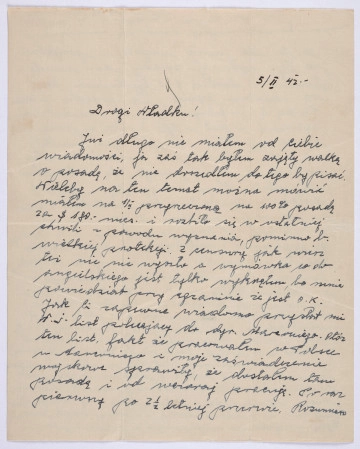 5/II 42.-
Drogi Władku!
Już długo nie miałem od Ciebie
wiadomości, ja zaś tak byłem zajęty walką
o posadę, że nie doszedłem do tego by pisać.
Wieleby na ten temat można mówić
miałem na 1/5 przyrzeczoną na 100% posadę
za $ 180.- mies. i rozbiło się w ostatniej
chwili z powodu wyznania, pomimo b.
wielkiej protekcji. Z cenzurą jak
mi nie wyszło a wymówka co do
angielskiego jest tylko wykrętem bo mnie
powiedział przy egzaminie że jest O.K.
Jak Ci zapewne wiadomo przysłał mi
list polecający do dyr.
ten list, fakt że pracowałem w Polsce
w i moje zaświadczenie
wojskowe sprawiły, że dostałem tam
posadę i od wczoraj pracuję. Po raz
pierwszy po 2½ letniej przerwie. Rozumiesz